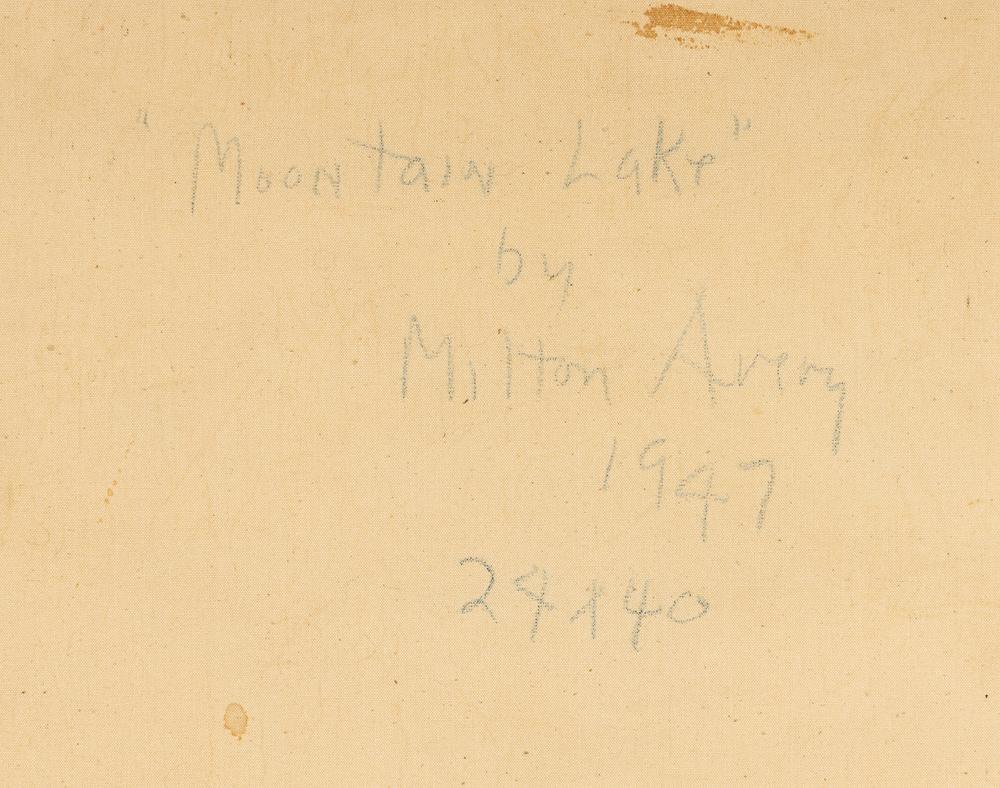 "Mountain Lake"
by
Milton Avery
1947
24x40